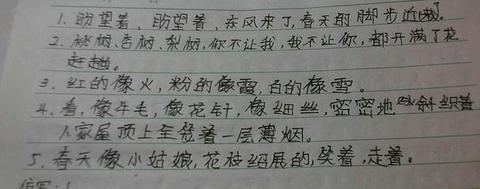 1. 盼望着，盼望着，东风来了，春天的脚步近了。
2. 桃树、杏树、梨树，你不让我，我不让你，都开满了花
赶趟。
3. 红的像火，粉的像霞，白的像雪。
4. 看，像牛毛，像花针，像细丝，密密地斜织着
人家屋顶上全笼着一层薄烟。
5. 春天像小姑娘，花枝招展的，笑着，走着。
仿写：